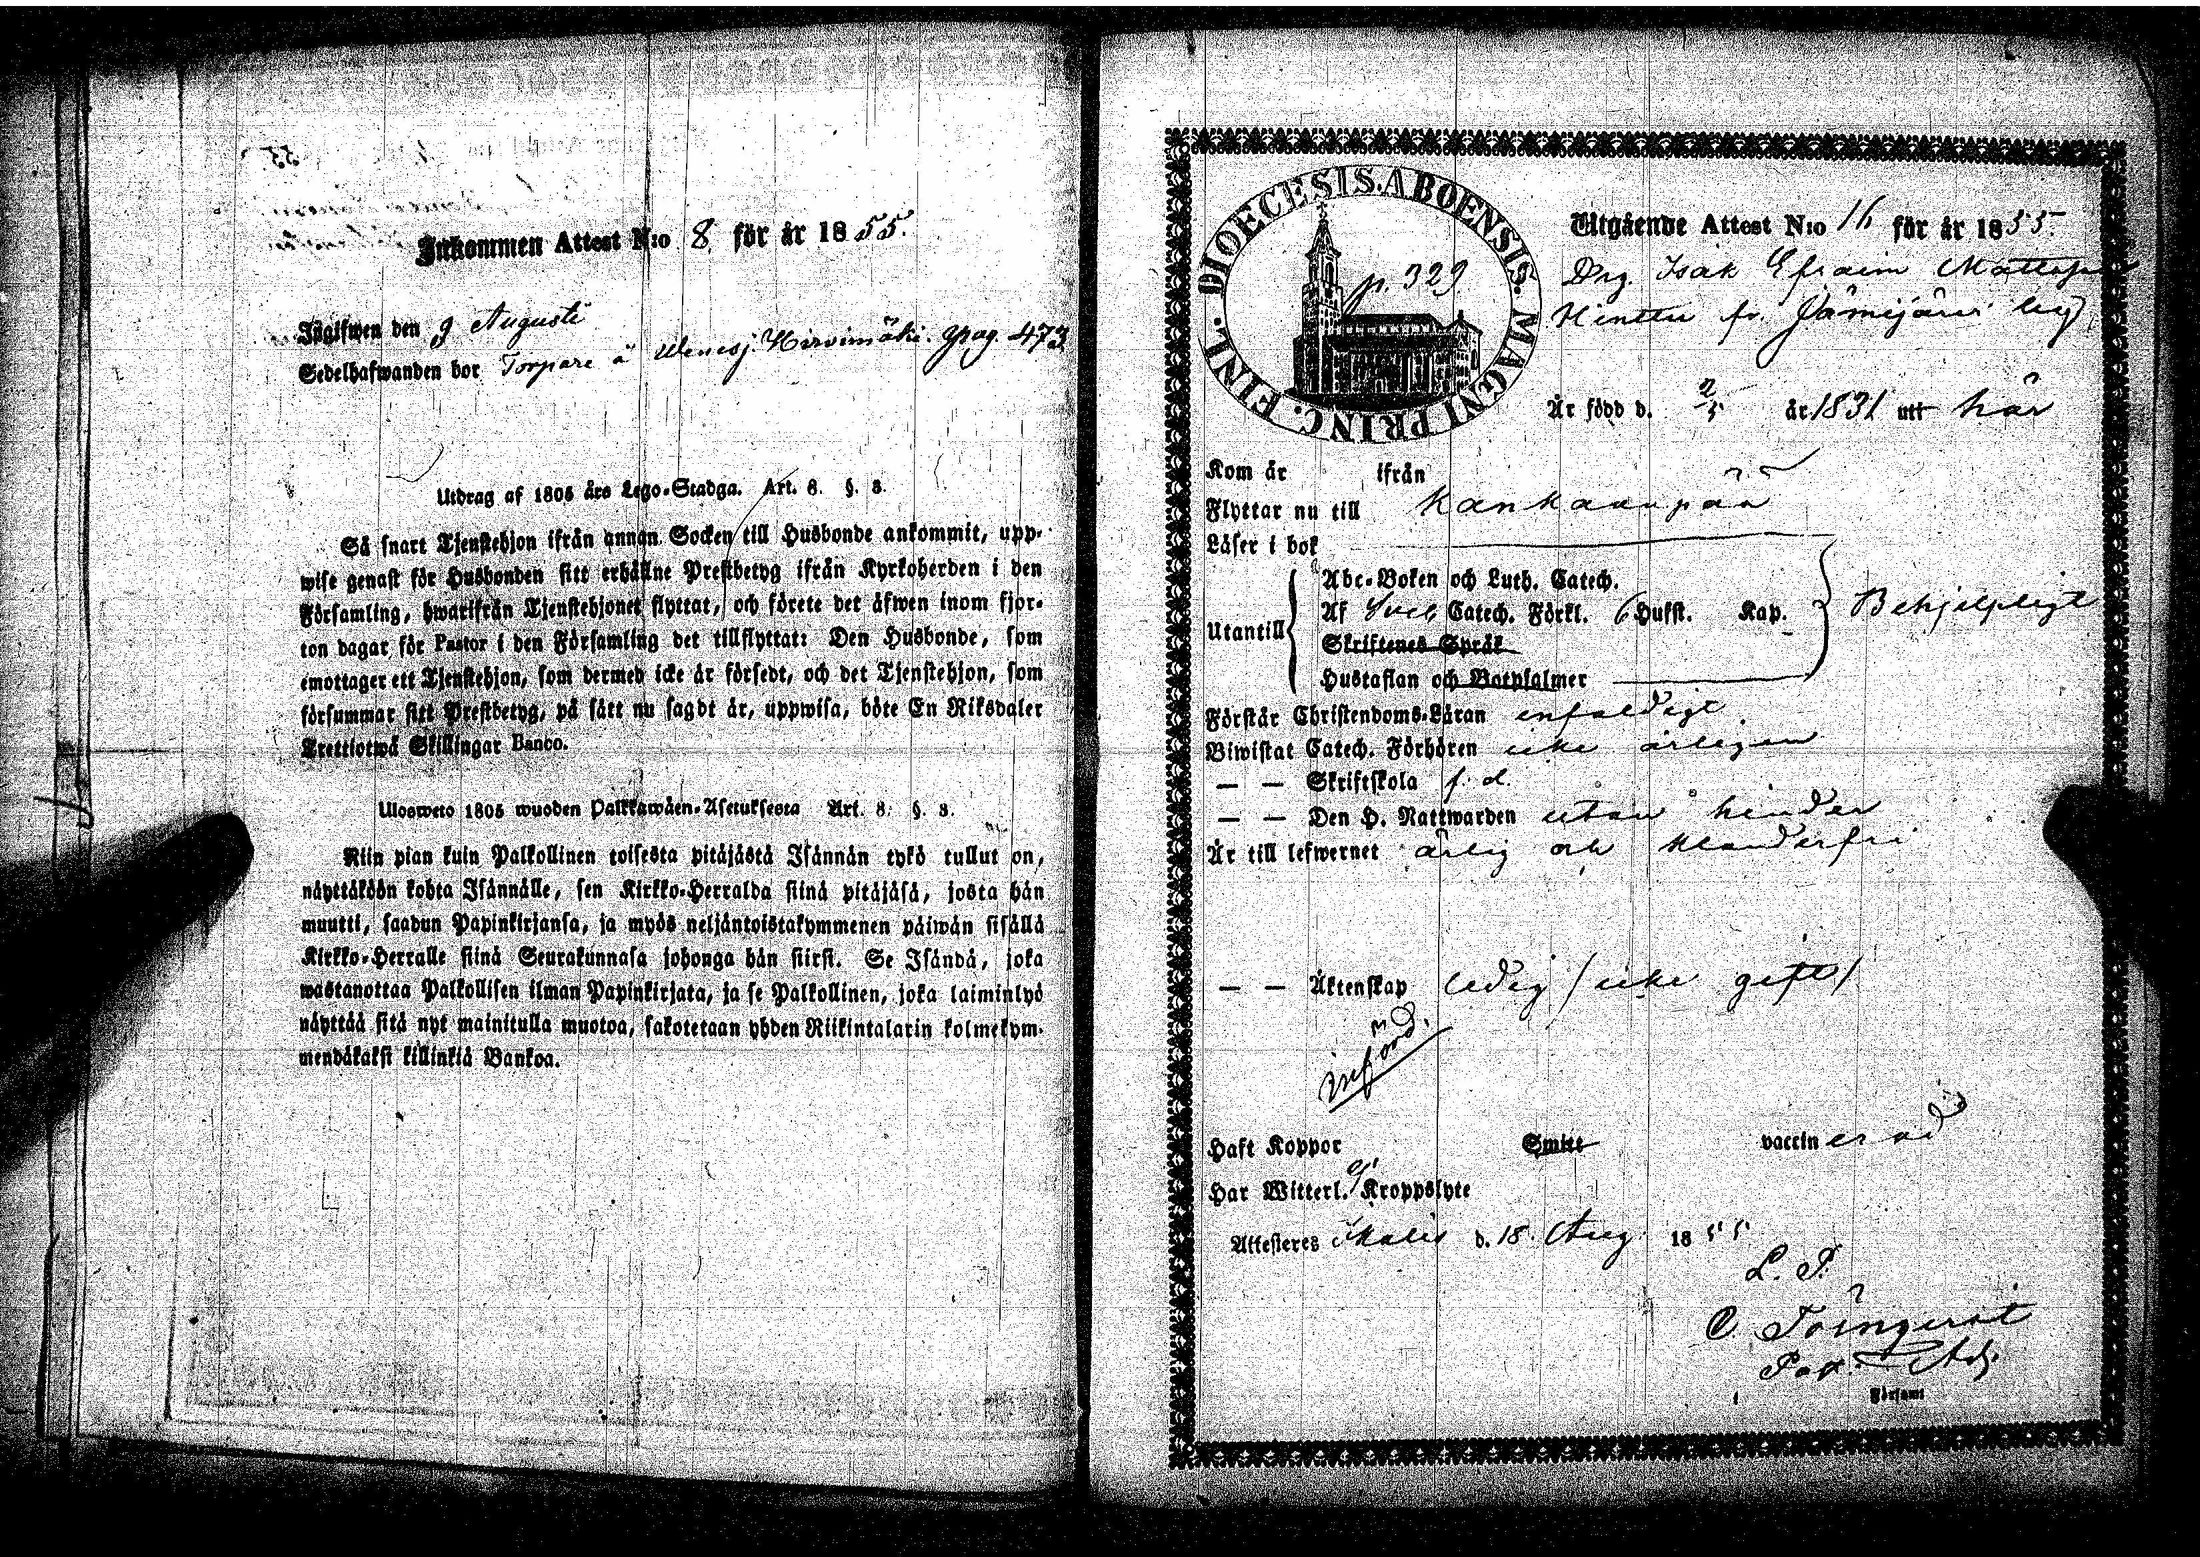 Inkommen Attest N:o 8 för år 1855.
Isgifwen den 9 Augusti
Sedelhafwanden bor Torpare å Wenesj. Hirvimäki. pag. 473
Utdrag af 1805 års Lego-Stadga. Art. 8. §. 3.
Så snart Tjenstehjon ifrån annan Socken till Husbonde ankommit, upp-
wise genast för Husbonden sitt erhållne Prestbetyg ifrån Kyrkoherden i den
Församling, hwarifrån Tjenstehjonet flyttat, och förete det äfwen inom fjor-
ton dagar för Pastor i den Församling det tillflyttat: Den Husbonde, som
emottager ett Tjenstehjon, som dermed icke är försedt, och det Tjenstehjon, som
försummar sitt Prestbetyg, på sätt nu sagdt är, uppwisa, böte En Riksdaler
Trettiotwå Skillingar Banco.
Ulosweto 1805 wuoden Palkkawäen-Asetuksesta Art. 8. §. 3.
Niin pian kuin Palkollinen toisesta pitäjästä Isännän tykö tullut on,
näyttäköön kohta Isännälle, sen Kirkko-Herralda siinä pitäjäsä, josta hän
muutti, saadun Papinkirjansa, ja myös neljäntoistakymmenen päiwän sisällä
Kirkko-Herralle siinä Seurakunnasa johonga hän siirsi. Se Isändä, joka
wastanottaa Palkollisen ilman Papinkirjata, ja se Palkollinen, joka laiminlyö
näyttää sitä nyt mainitulla muotoa, sakotetaan yhden Riikintalarin kolmekym-
mendäkaksi killinkiä Bankoa.
DIOECESIS. ABOENSIS. MAGNI PRINC. FINL.
p. 329
Utgående Attest N:o 16 för år 1855.
Drg. Isak Efraim Mattsson
Hinttu fr. Jämijärvi
Är född d. 2/5 år 1831 utt här
Kom år ifrån
Flyttar nu till Kankaanpää
Läser i bok
Utantill
Abc-Boken och Luth. Catech.
Af Sveb Catech. Förkl. 6 Hufst. Kap.
Behjelpligt
Skriftenes Språk
Hustaflan och Botpsalmer
Förstår Christendoms-Läran enfaldigt
Biwistat Catech. Förhören icke årligen
— — Skriftskola f. d.
— — Den H. Nattwarden utan hinder
Är till lefwernet ärlig och klanderfri
— — Äktenskap ledig / icke gift /
införd.
Haft Koppor Smitt vaccinerad
Har Witterl. ej Kroppslyte
Attesteres Ikalis d. 18 Aug 1855
L. P.
Past. Adj.
Församl